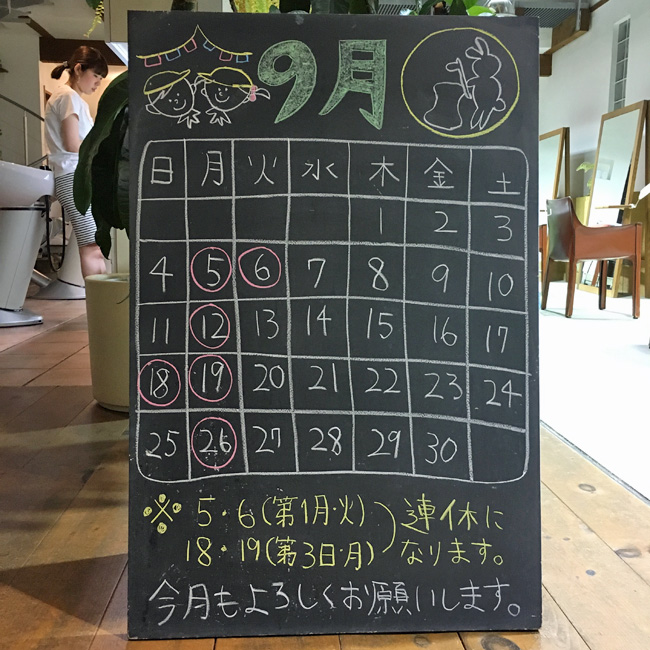 9月
日 月 火 水 木 金 土
1 2 3
4 5 6 7 8 9 10
11 12 13 14 15 16 17
18 19 20 21 22 23 24
25 26 27 28 29 30
※ 5・6(第1月・火)
18・19(第3日・月)
) 連休に
なります。
今月もよろしくお願いします。